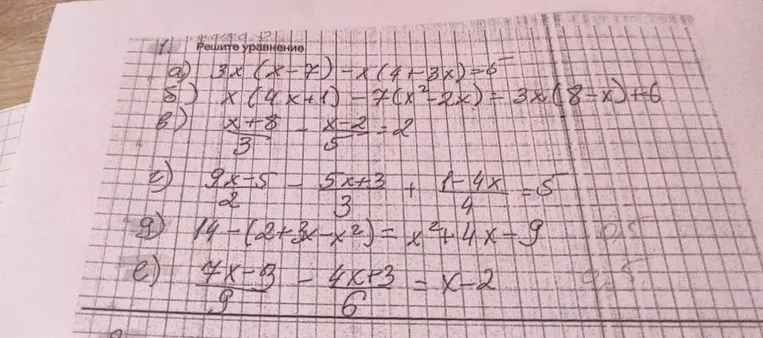 1. Решите уравнение
а) 3x(x-7)-x(4+3x)=5
б) x(4x+1)-7(x²-2x)=3x(8-x)+6
в) (x+8)/3 - (x-2)/5 = 2
г) (9x-5)/2 - (5x+3)/3 + (1-4x)/4 = 5
д) 14-(2+3x-x²)=x²+4x-9
е) (7x-3)/9 - (4x+3)/6 = x-2